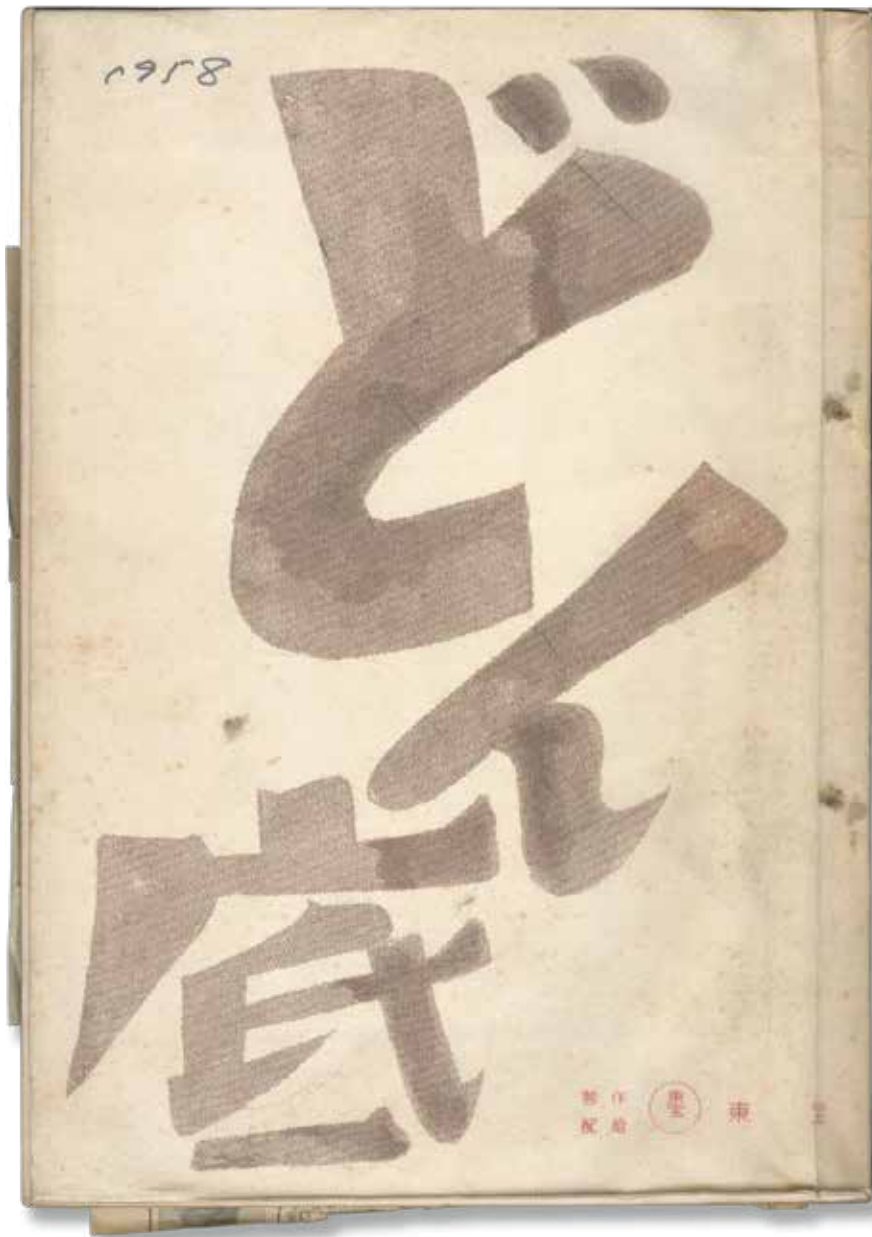 1958
どん底
製作
配給
東宝
東